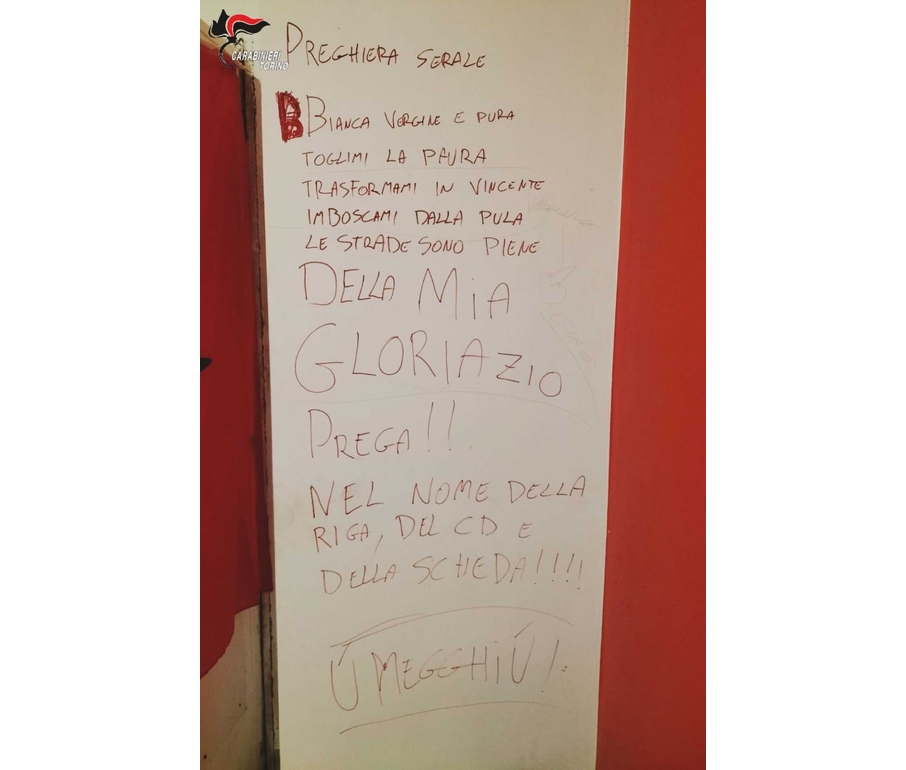 CARABINIERI
TORINO
PREGHIERA SERALE
B BIANCA VERGINE E PURA
TOGLIMI LA PAURA
TRASFORMAMI IN VINCENTE
IMBOSCAMI DALLA PULA
LE STRADE SONO PIENE
DELLA MiA
GLORIA ZIO
PREGA!!
NEL NOME DELLA
RIGA, DEL CD E
DELLA SCHEDA!!!!
Ú MEGGHiÚ!